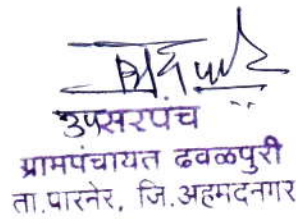 उपसरपंच
ग्रामपंचायत ढवळपुरी
ता.पारनेर, जि.अहमदनगर